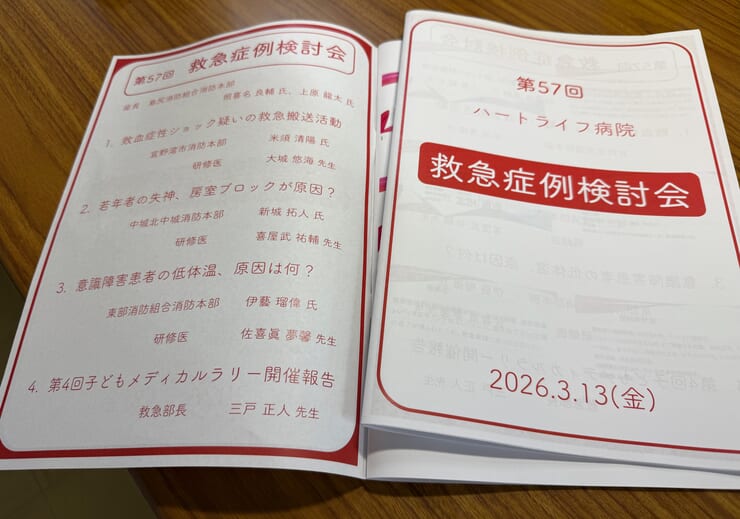 第57回 救急症例検討会
座長 島尻消防組合消防本部
照喜名 良輔 氏、上原 龍太 氏
1. 敗血症性ショック疑いの救急搬送活動
宜野湾市消防本部 米須 清陽 氏
研修医 大城 悠海 先生
2. 若年者の失神、房室ブロックが原因？
中城北中城消防本部 新城 拓人 氏
研修医 喜屋武 祐輔 先生
3. 意識障害患者の低体温、原因は何？
東部消防組合消防本部 伊藝 瑠偉 氏
研修医 佐喜眞 夢馨 先生
4. 第4回子どもメディカルラリー開催報告
救急部長 三戸 正人 先生
第57回
ハートライフ病院
救急症例検討会
2026.3.13(金)